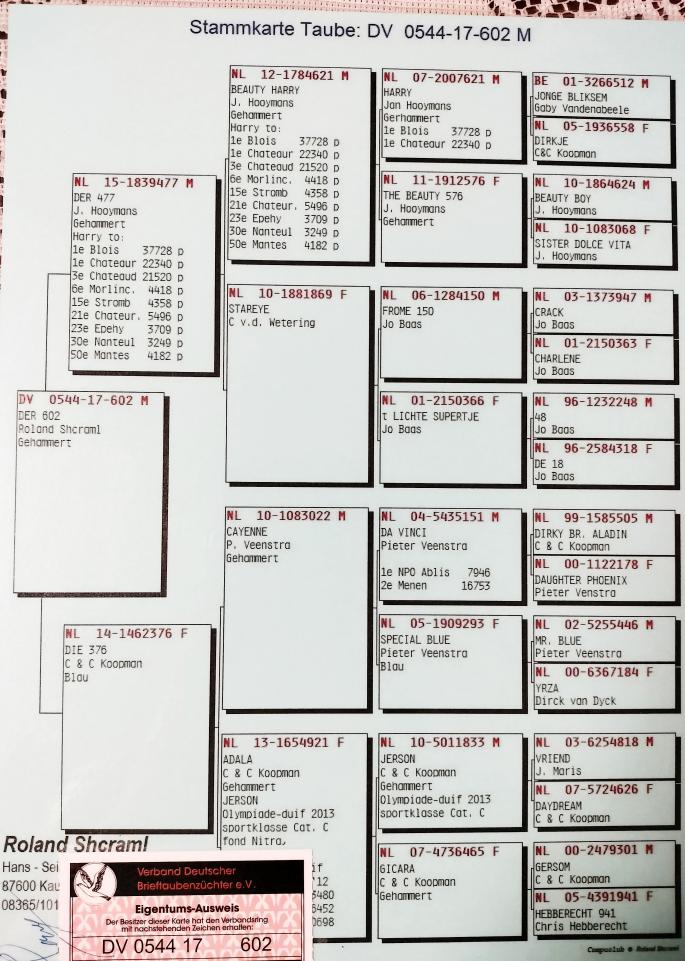 Stammkarte Taube: DV 0544-17-602 M
DV 0544-17-602 M
DER 602
Roland Shcraml
Gehammert
NL 15-1839477 M
DER 477
J. Hooymans
Gehammert
Harry to:
1e Blois 37728 p
1e Chateaur 22340 p
3e Chateaud 21520 p
6e Morlinc. 4418 p
15e Stromb 4358 p
21e Chateur. 5496 p
23e Epehy 3709 p
30e Nanteul 3249 p
50e Mantes 4182 p
NL 14-1462376 F
DIE 376
C & C Koopman
Blau
NL 12-1784621 M
BEAUTY HARRY
J. Hooymans
Gehammert
Harry to:
1e Blois 37728 p
1e Chateaur 22340 p
3e Chateaud 21520 p
6e Morlinc. 4418 p
15e Stromb 4358 p
21e Chateur. 5496 p
23e Epehy 3709 p
30e Nanteul 3249 p
50e Mantes 4182 p
NL 10-1881869 F
STAREYE
C v.d. Wetering
NL 10-1083022 M
CAYENNE
P. Veenstra
Gehammert
NL 13-1654921 F
ADALA
C & C Koopman
Gehammert
JERSON
Olympiade-duif 2013
sportklasse Cat. C
fond Nitra,
NL 07-2007621 M
HARRY
Jan Hooymans
Gerhammert
1e Blois 37728 p
1e Chateaur 22340 p
NL 11-1912576 F
THE BEAUTY 576
J. Hooymans
Gehammert
NL 06-1284150 M
FROME 150
Jo Baas
NL 01-2150366 F
t LICHTE SUPERTJE
Jo Baas
NL 04-5435151 M
DA VINCI
Pieter Veenstra
1e NPO Ablis 7946
2e Menen 16753
NL 05-1909293 F
SPECIAL BLUE
Pieter Veenstra
Blau
NL 10-5011833 M
JERSON
C & C Koopman
Gehammert
Olympiade-duif 2013
sportklasse Cat. C
NL 07-4736465 F
GICARA
C & C Koopman
Gehammert
BE 01-3266512 M
JONGE BLIKSEM
Gaby Vandenabeele
NL 05-1936558 F
DIRKJE
C&C Koopman
NL 10-1864624 M
BEAUTY BOY
J. Hooymans
NL 10-1083068 F
SISTER DOLCE VITA
J. Hooymans
NL 03-1373947 M
CRACK
Jo Baas
NL 01-2150363 F
CHARLENE
Jo Baas
NL 96-1232248 M
48
Jo Baas
NL 96-2584318 F
DE 18
Jo Baas
NL 99-1585505 M
DIRKY BR. ALADIN
C & C Koopman
NL 00-1122178 F
DAUGHTER PHOENIX
Pieter Venstra
NL 02-5255446 M
MR. BLUE
Pieter Veenstra
NL 00-6367184 F
YRZA
Dirck van Dyck
NL 03-6254818 M
VRIEND
J. Maris
NL 07-5724626 F
DAYDREAM
C & C Koopman
NL 00-2479301 M
GERSOM
C & C Koopman
NL 05-4391941 F
HEBBERECHT 941
Chris Hebberecht
Roland Shcraml
Hans - Sei
87600 Kau
08365/101
if
'12
5480
6452
0698
Verband Deutscher
Brieftaubenzüchter e.V.
Eigentums-Ausweis
Der Besitzer dieser Karte hat den Verbandsring
mit nachstehenden Zeichen erhalten:
DV 0544 17 602
Compuclub © Roland Shcraml